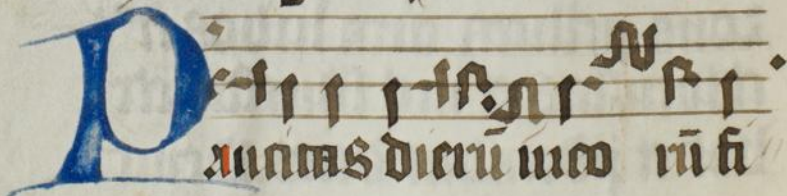 Paucitas dierū meoꝝ rū fi